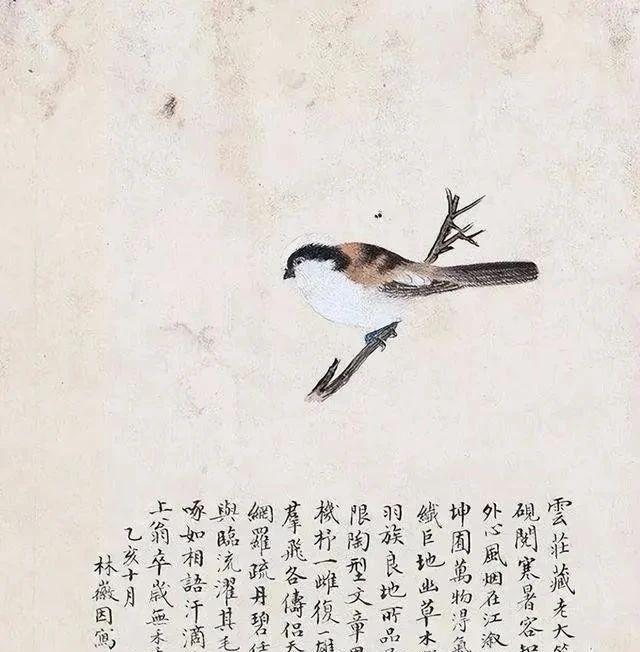 雲莊藏老大
硯閱寒暑容
外心風烟在江
坤圄萬物得氣
纖巨地幽草木
羽族良地所品
限陶型文章
機杼一雌復一雄
羣飛各儔侶天
網羅疏丹碧任
與臨流濯其毛
啄如相語汗滴
上翁卒歲無禾
乙亥十月
林徽因寫